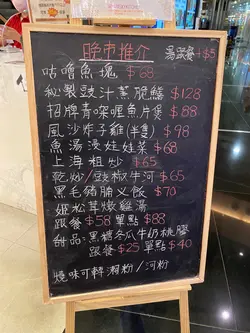 晚市推介
湯或餐+$5
咕嚕魚塊 $68
秘製豉汁蒸脆鱔 $128
招牌青咖喱魚片煲 $88
風沙炸子雞(半隻) $98
魚湯浸娃娃菜 $68
上海粗炒 $65
乾炒/豉椒牛河 $65
黑毛豬腩叉飯 $70
姬松茸燉雞湯
跟餐 $58 單點 $88
甜品:黑糖冬瓜牛奶桃膠
跟餐 $25 單點 $40
燒味可轉瀨粉/河粉